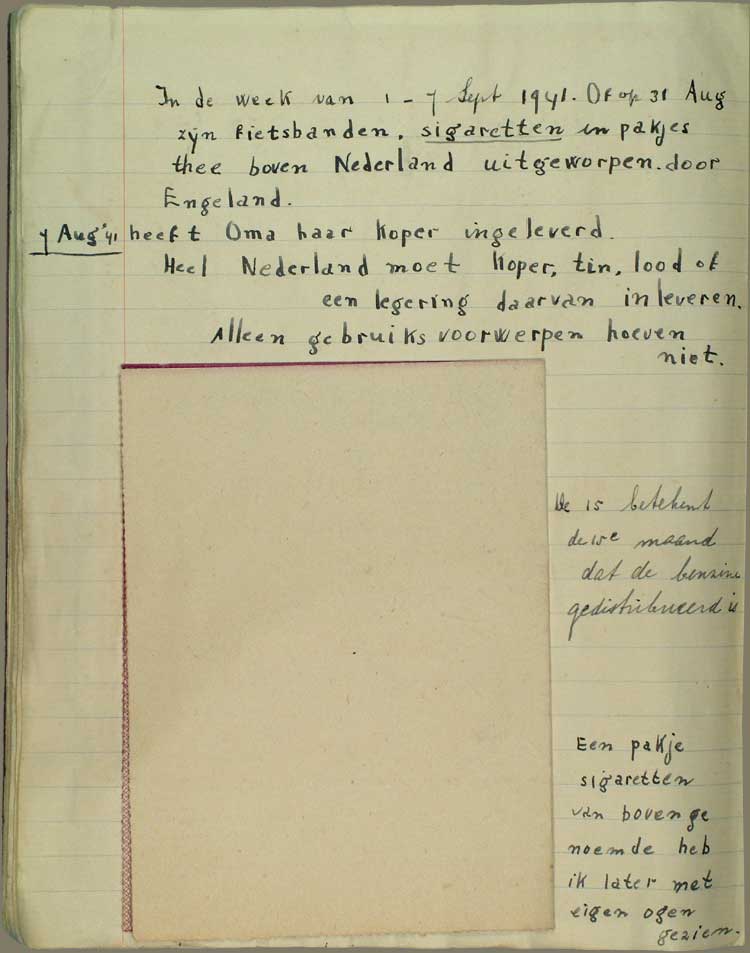 In de week van 1 - 7 Sept 1941. Of op 31 Aug
zijn fietsbanden, sigaretten en pakjes
thee boven Nederland uitgeworpen. door
Engeland.
7 Aug '41 heeft Oma haar koper ingeleverd.
Heel Nederland moet koper, tin, lood of
een legering daarvan inleveren.
Alleen gebruiks voorwerpen hoeven
niet.
De 15 betekent
de 15e maand
dat de benzine
gedistribueerd is
Een pakje
sigaretten
van bovenge
noemde heb
ik later met
eigen ogen
gezien.